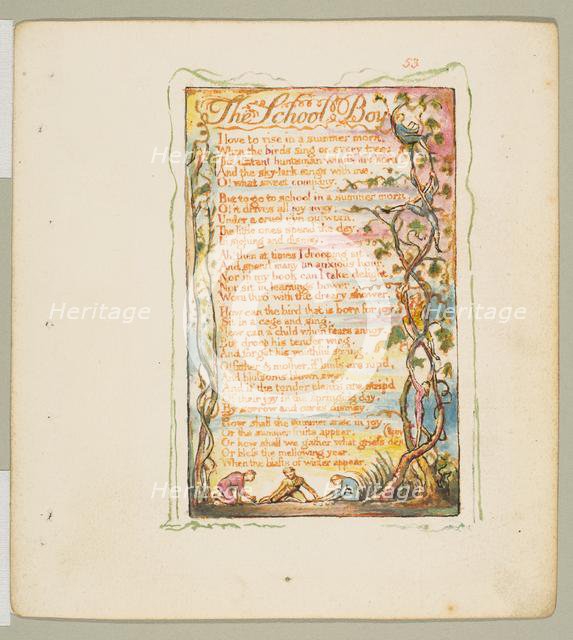 53
The School Boy
I love to rise in a summer morn,
When the birds sing on every tree;
The distant huntsman winds his horn,
And the sky-lark sings with me.
O! what sweet company.
But to go to school in a summer morn,
O! it drives all joy away;
Under a cruel eye outworn,
The little ones spend the day,
In sighing and dismay.
Ah! then at times I drooping sit,
And spend many an anxious hour,
Nor in my book can I take delight,
Nor sit in learnings bower,
Worn thro' with the dreary shower.
How can the bird that is born for joy,
Sit in a cage and sing.
How can a child when fears annoy,
But droop his tender wing,
And forget his youthful spring.
O! father & mother, if buds are nip'd,
And blossoms blown away,
And if the tender plants are strip'd
Of their joy in the springing day,
By sorrow and cares dismay,
How shall the summer arise in joy
Or the summer fruits appear,
Or how shall we gather what griefs destroy
Or bless the mellowing year,
When the blasts of winter appear.
Heritage
Heritage
Heritage
Heritage
Heritage
Heritage